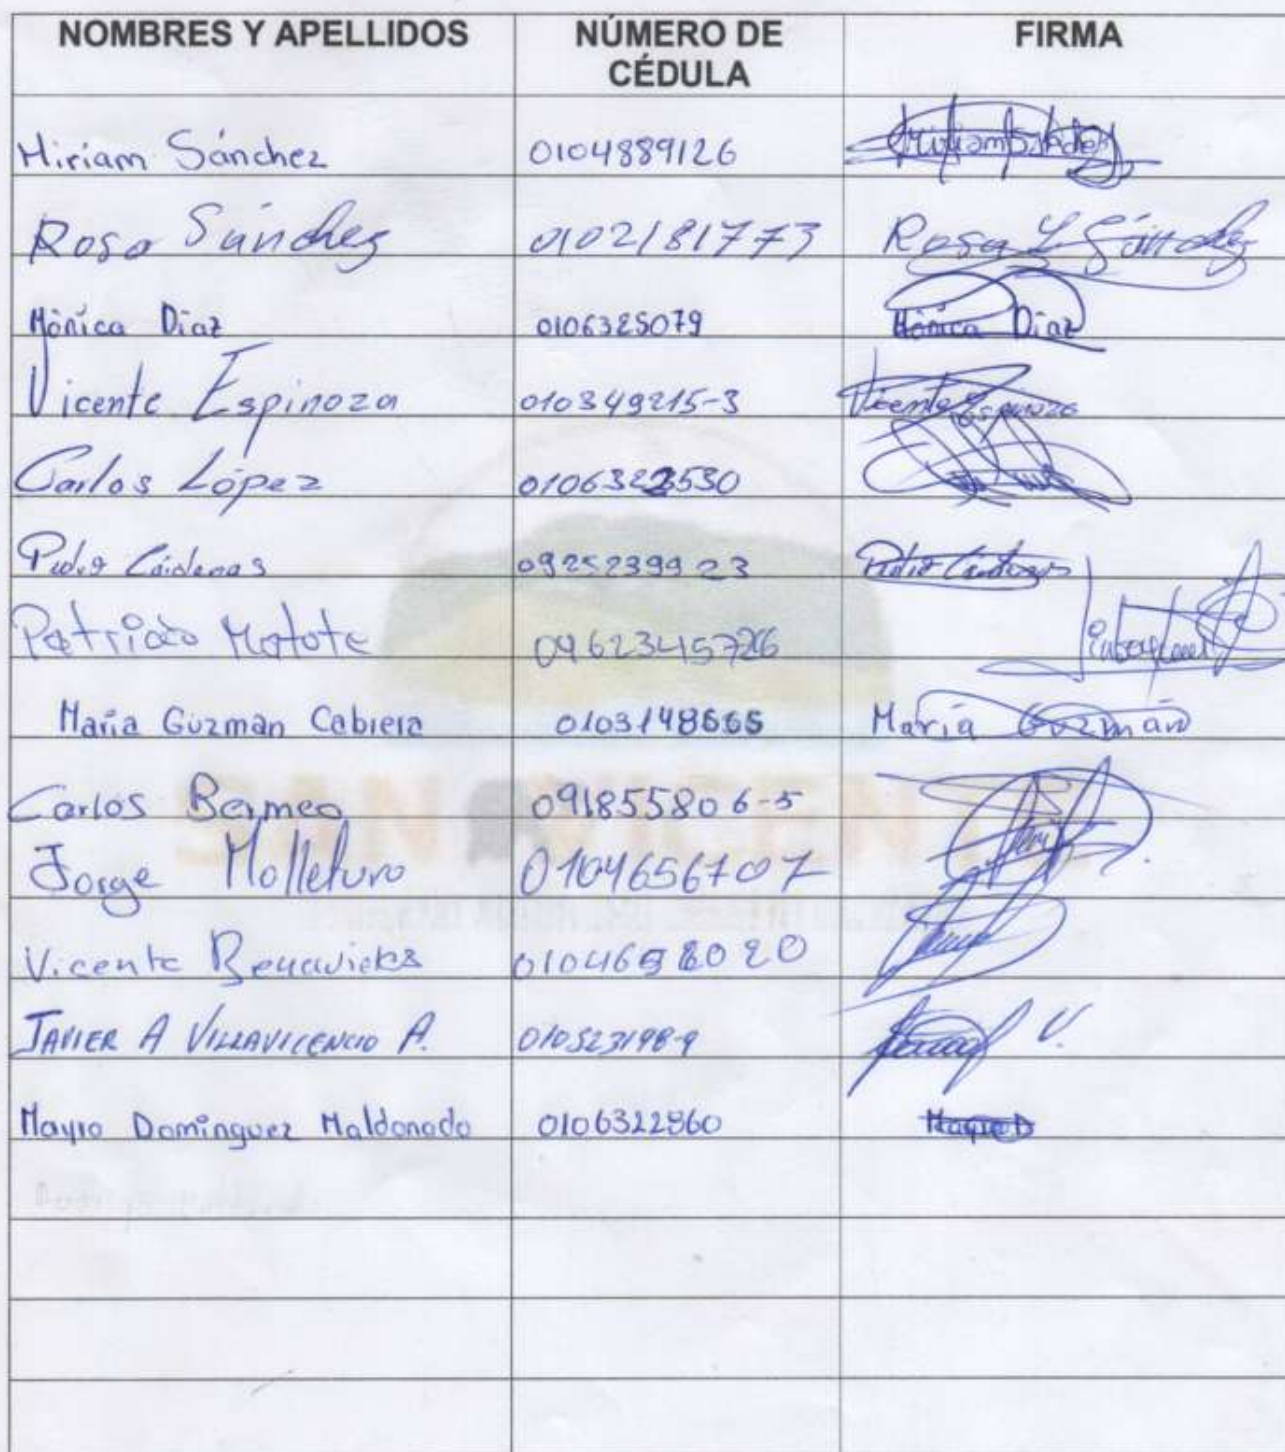 NOMBRES Y APELLIDOS NÚMERO DE CÉDULA FIRMA
Miriam Sánchez 0104889126
Rosa Sánchez 0102181773 Rosa L Sánchez
Mónica Díaz 0106325079 Mónica Díaz
Vicente Espinoza 010349215-3 Vicente Espinoza
Carlos López 0106322530
Pedro Cárdenas 0925239923 Pedro Cárdenas
Patricio Matote
María Guzman Cabrera 0103148665 María Guzmán
Carlos Bermeo 091855806-5
Jorge Molleturo 0104656707
Vicente Benavides
JAVIER A VILLAVICENCIO A. 010523198-9 V.
Mayra Dominguez Maldonado 0106322860